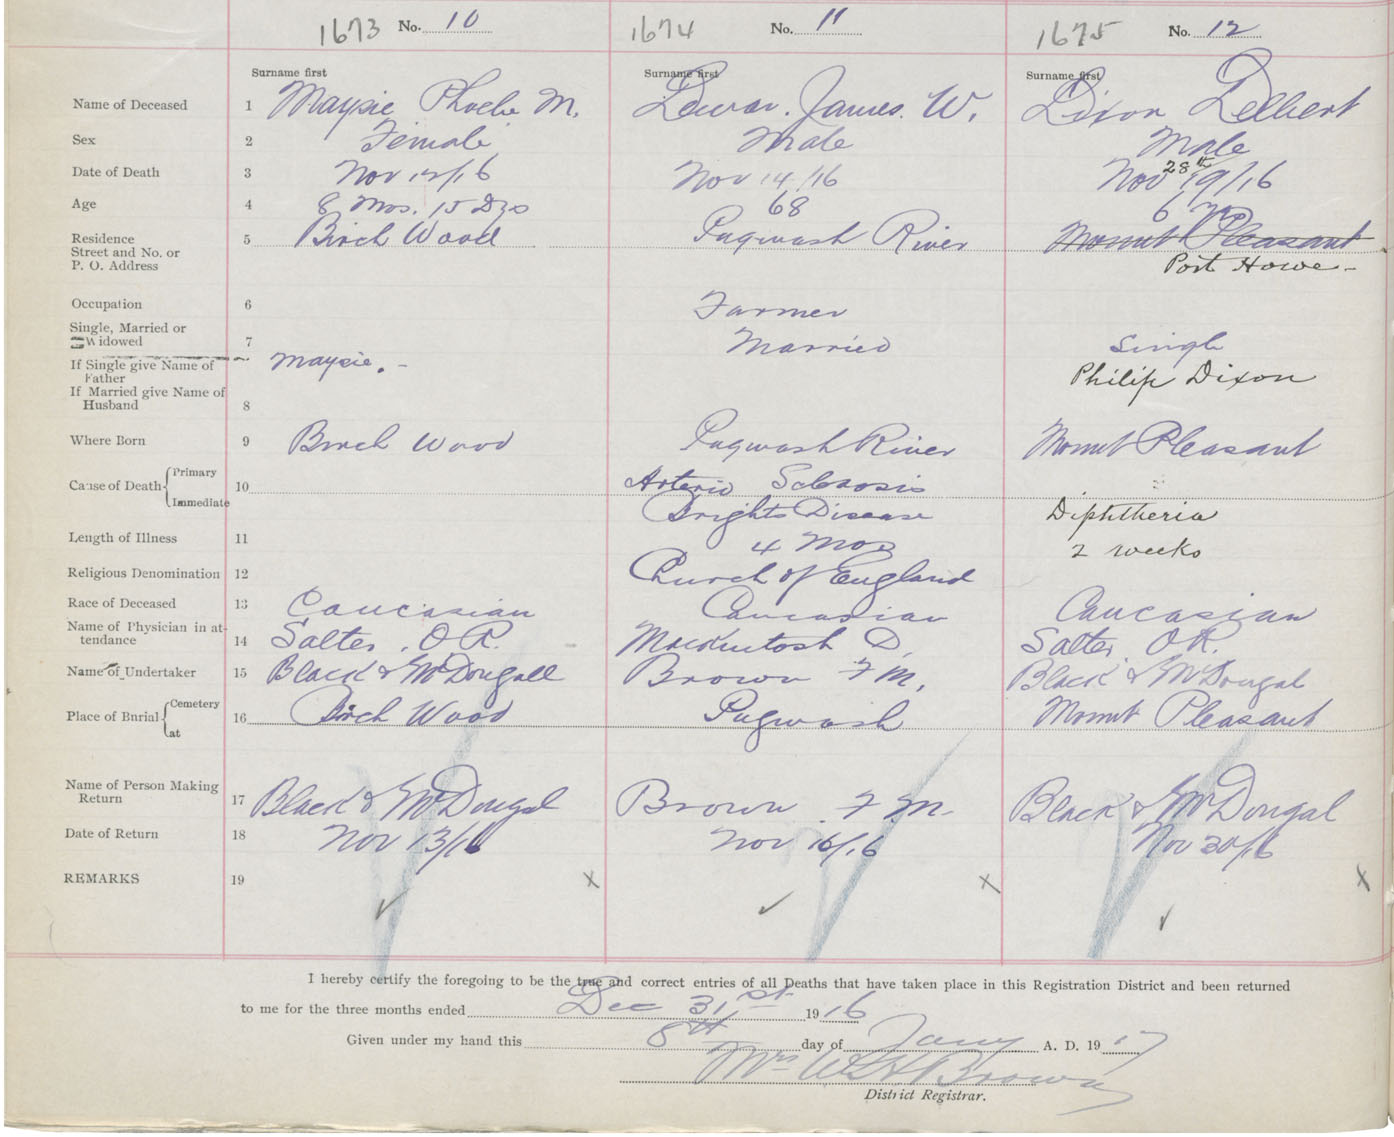 1673 No. 10 1674 No. 11 1675 No. 12
Surname first Surname first Surname first
Name of Deceased 1 Maysie Phoebe M. Dewar. James. W. Dixon Delbert
Sex 2 Female Male Male
Date of Death 3 Nov 12/16 Nov 14/16 Nov 28th 19/16
Age 4 8 Mos. 15 Dys 68 6
Residence
Street and No. or
P. O. Address
5 Birch Wood Pugwash River Mount Pleasant
Port Howe -
Occupation 6 Farmer
Single, Married or
Widowed 7 Married Single
If Single give Name of
Father Maysie. - Philip Dixon
If Married give Name of
Husband 8
Where Born 9 Birch Wood Pugwash River Mount Pleasant
Cause of Death { Primary
Immediate 10 Arterio Sclerosis
Brights Disease Diphtheria
Length of Illness 11 4 Mos 2 weeks
Religious Denomination 12 Church of England
Race of Deceased 13 Caucasian Caucasian Caucasian
Name of Physician in at-
tendance 14 Salter, O R. Mackintosh D. Salter, O R.
Name of Undertaker 15 Black & McDougall Brown F M. Black & McDougal
Place of Burial { Cemetery
at 16 Birch Wood Pugwash Mount Pleasant
Name of Person Making
Return 17 Black & McDougal Brown F. M. Black & McDougal
Date of Return 18 Nov 13/16 Nov 16/16 Nov 30/16
REMARKS 19 x x x
I hereby certify the foregoing to be the true and correct entries of all Deaths that have taken place in this Registration District and been returned
to me for the three months ended Dec 31st 1916
Given under my hand this 8th day of Jany A. D. 1917
Mrs W H Brown
District Registrar.